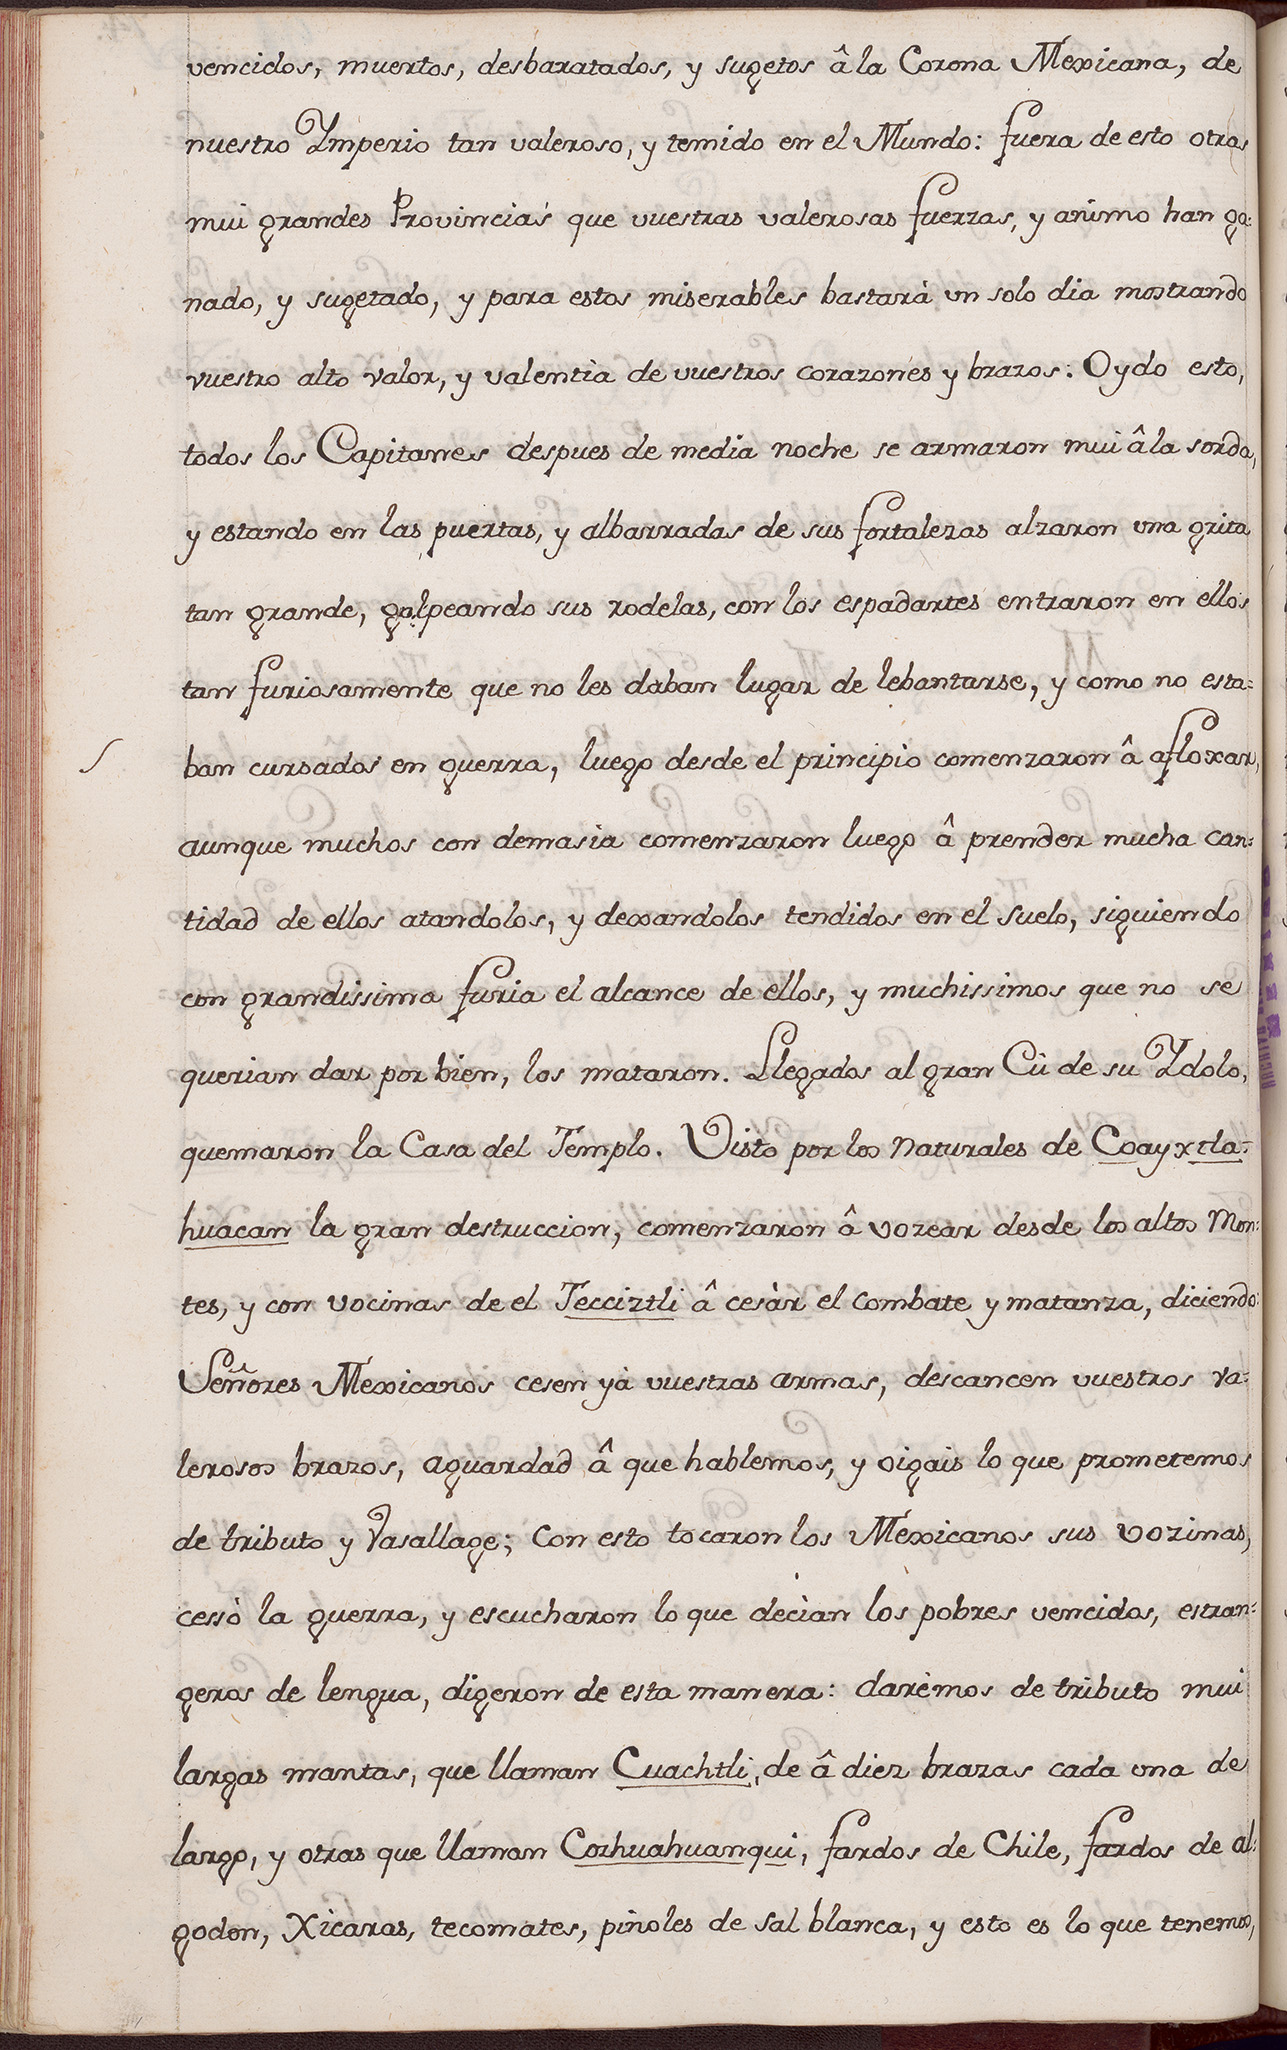 vencidos, muertos, desbaratados, y sugetos â la Corona Mexicana, de
nuestro Ymperio tan valeroso, y temido en el Mundo: fuera de esto otras
mui grandes Provincias que vuestras valerosas fuerzas, y animo han ga=
nado, y sugetado, y para estos miserables bastarà un solo dia mostrando
vuestro alto valor, y valentia de vuestros corazones y brazos: Oydo esto,
todos los Capitanes despues de media noche se armaron mui â la sorda,
y estando en las puertas, y albarradas de sus fortalezas alzaron una grita
tan grande, golpeando sus rodelas, con los espadartes entraron en ellos
tan furiosamente que no les daban lugar de lebantarse, y como no esta=
ban cursados en guerra, luego desde el principio comenzaron â afloxar,
aunque muchos con demasia comenzaron luego â prender mucha can=
tidad de ellos atandolos, y dexandolos tendidos en el suelo, siguiendo
con grandissima furia el alcance de ellos, y muchissimos que no se
querian dar por bien, los mataron. Llegados al gran Cù de su Ydolo,
quemaron la Casa del Templo. Visto por los Naturales de Coayxtla=
huacan la gran destruccion, comenzaron â vozear desde los altos Mon=
tes, y con vocinas de el Tecciztli â cesàr el combate y matanza, diciendo:
Señores Mexicanos cesen yà vuestras armas, descancen vuestros va=
lerosos brazos, aguardad â que hablemos, y oigais lo que prometemos
de tributo y Vasallage; Con esto tocaron los Mexicanos sus vozinas,
cessò la guerra, y escucharon lo que decian los pobres vencidos, estran=
geros de lengua, digeron de esta manera: darèmos de tributo mui
largas mantas, que llaman Cuachtli, de â diez brazas cada una de
largo, y otras que llaman Cozhuahuanqui, fardos de Chile, fardos de al=
godon, Xicaras, tecomates, piñoles de sal blanca, y esto es lo que tenemos,